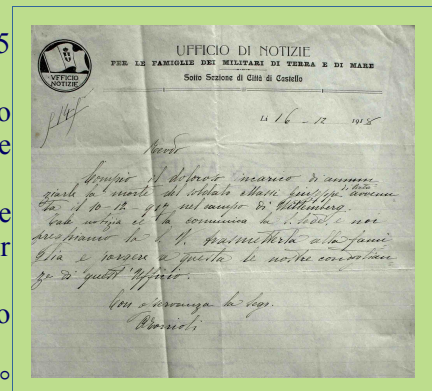 5
o
e
e
r
o
o
UFFICIO DI NOTIZIE
PER LE FAMIGLIE DEI MILITARI DI TERRA E DI MARE
Sotto Sezione di Città di Castello
VFFICIO
NOTIZIE
Li 16 - 12 1918
Compio il doloroso incarico di annun
ziarle la morte del soldato Giuseppe di avvenu
ta il 10-12-917 nel campo di Wittemberg.
Tale notizia ce la comunica la e noi
preghiamo la S. V. trasmetterla alla fami
glia e porgere a questa le nostre condoglian
ze di quest'Ufficio.
Con osservanza la Segr.